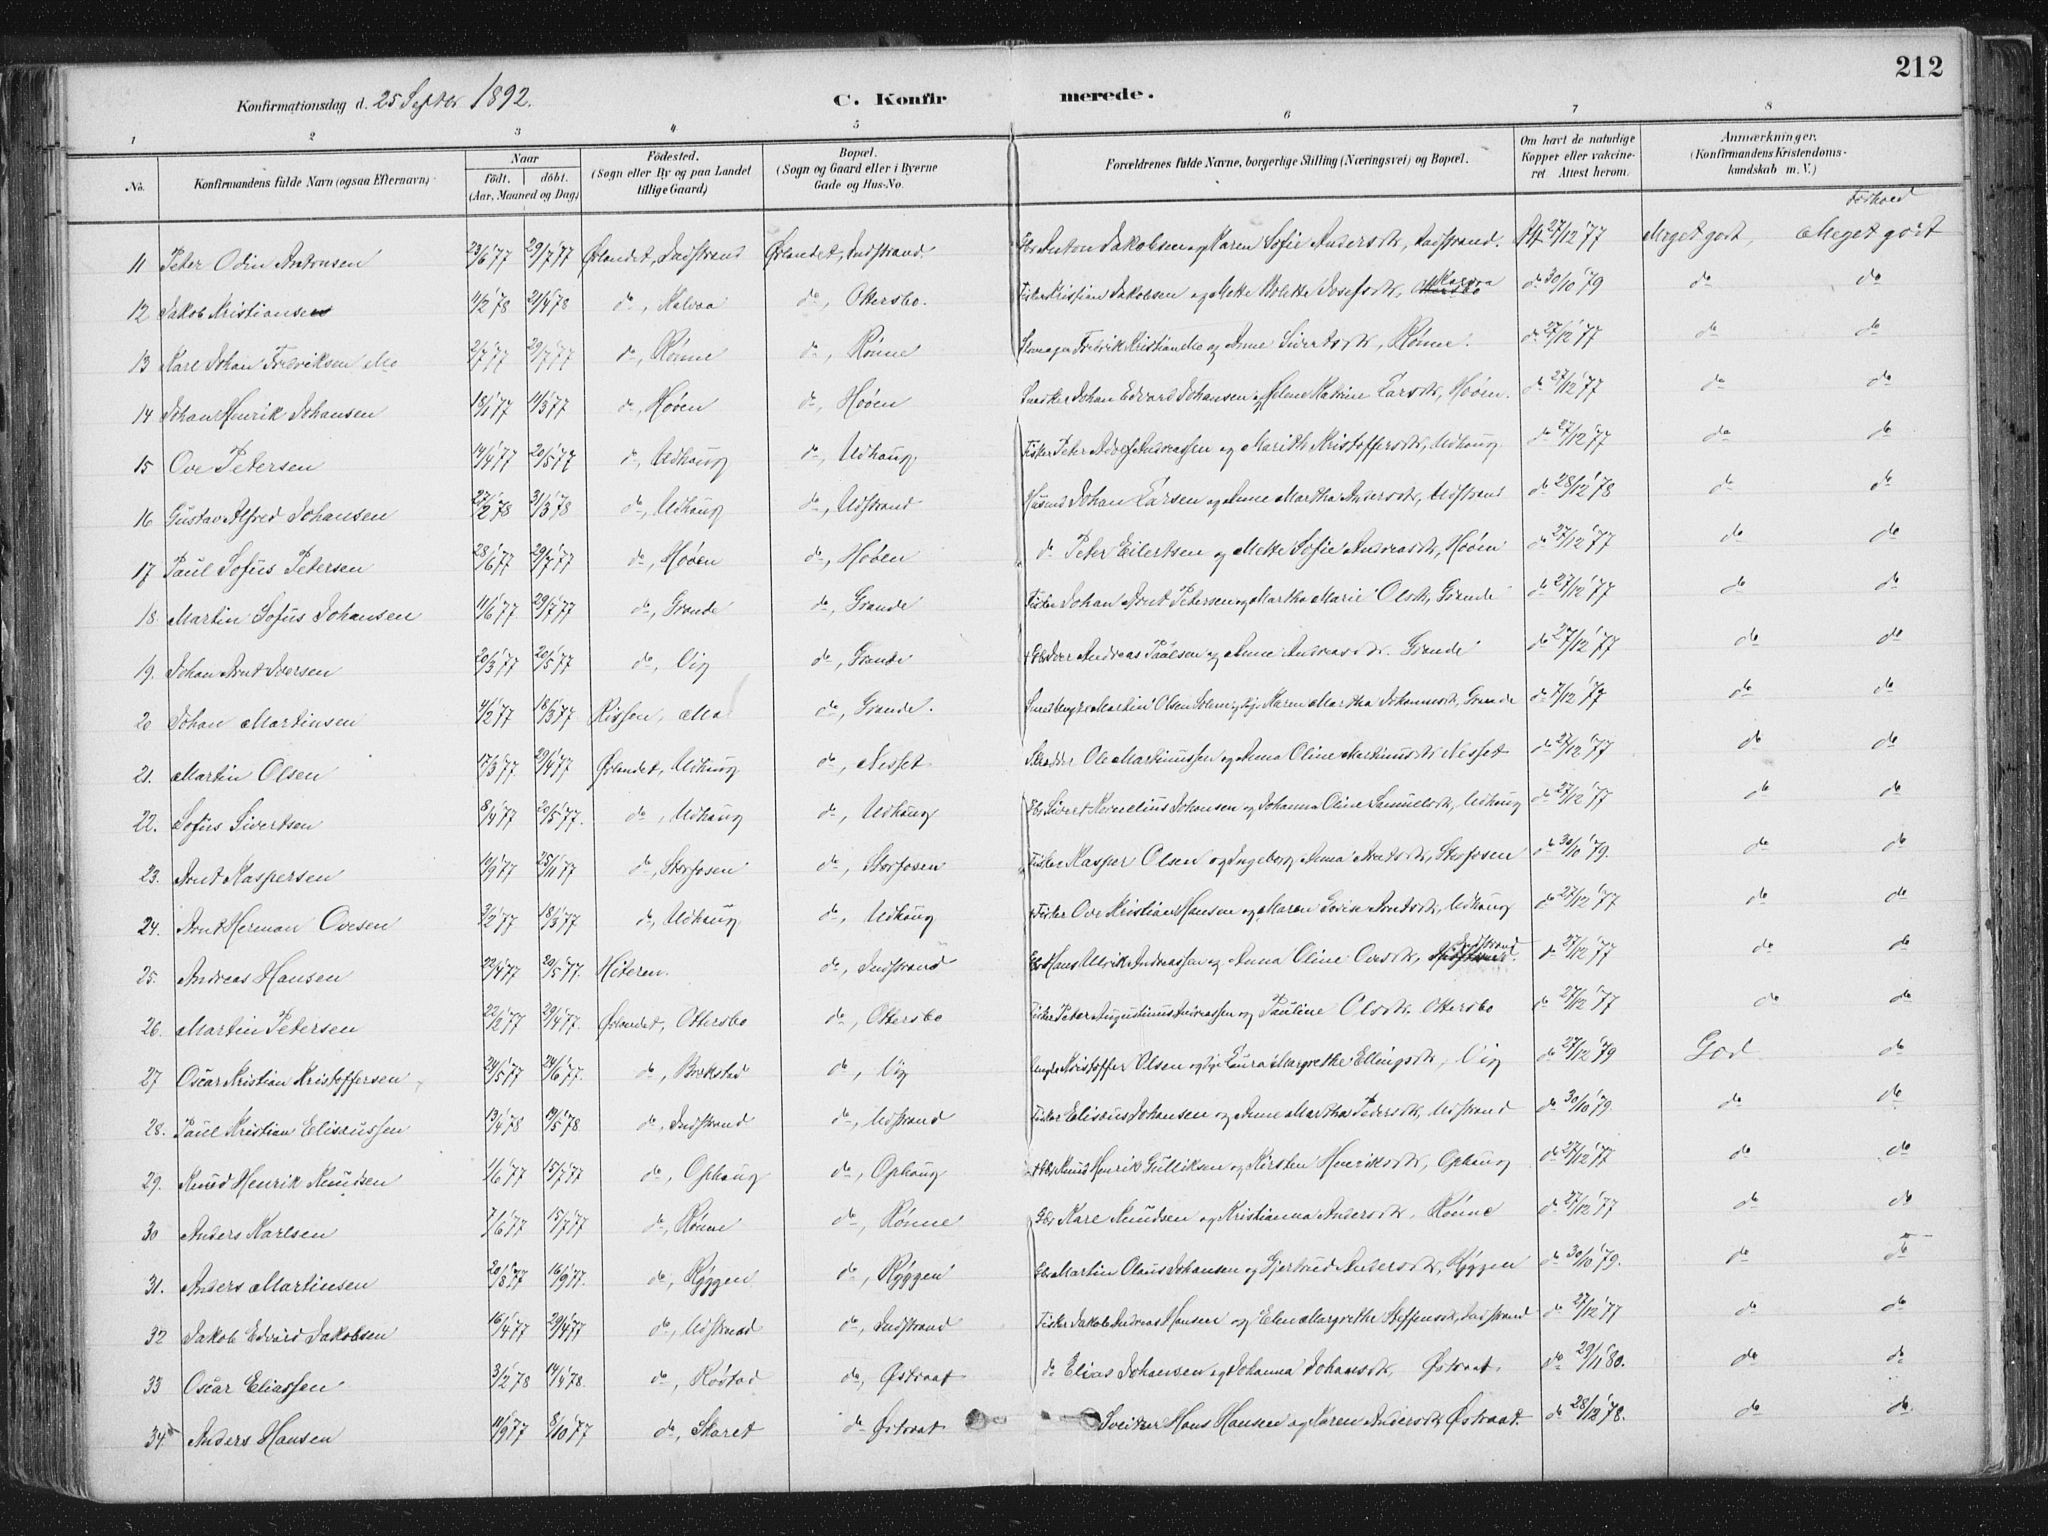 212
Konfirmationsdag d. 25 Septbr 1892.
C. Konfirmerede.
1 2 3 4 5 6 7 8
No. Konfirmandens fulde Navn (ogsaa Efternavn). Naar födt. döbt. (Aar, Maaned og Dag) Födested. (Sogn eller By og paa Landet tillige Gaard) Bopæl. (Sogn og Gaard eller i Byerne Gade og Hus-No. Forældrenes fulde Navne, borgerlige Stilling (Næringsvei) og Bopæl. Om havt de naturlige Kopper eller vakcineret Attest herom. Anmærkninger. (Konfirmandens Kristendomskundskab m. V.)
Forhold
11 Peter Odin Antonsen 23/6 '77 29/7 '77 Ørlandet, Indstrand Ørlandet, Indstrand. Anton Jakobsen og Karen Sofie Andersdt, Indstrand. Att 27/12 '77 Meget godt, Meget godt
12 Jakob Kristiansen 11/2 '78 21/4 '78 do, do, Ottersbo. Fisker Kristian Jakobsen og Mette do 30/10 '79 do do
13 Karl Johan Fredriksen Mo 2/7 '77 29/7 '77 do, Rønne do, Rønne Fredrik Kristian Mo og Anne Sivertsdt, Rønne. do 27/12 '77 do do
14 Johan Henrik Johansen 18/1 '77 11/3 '77 do, Høøen do, Høøen Johan Edvard Johansen og Helene Katrine Larsdt, Høøen. do 27/12 '77 do do
15 Ove Petersen 14/4 '77 20/5 '77 do, Udhaug do, Udhaug. Fisker Peter Adolf Andreassen og Marith Kristoffersdt, Udhaug do 27/12 '77 do do
16 Gustav Alfred Johansen 27/2 '78 31/3 '78 do, Udhaug do, Udstrand Husmd Johan Larsen og Anne Martha Andersdt, Udstrand do 28/12 '78 do do
17 Paul Sofus Petersen 28/6 '77 29/7 '77 do, Høøen do, Høøen do Peter Eilertsen og Mette Sofie Andreasdt, Høøen do 27/12 '77 do do
18. Martin Sofus Johansen 11/6 '77 29/7 '77 do, Grande do, Grande Fisker Johan Arnt Petersen og Martha Marie Olsdt, Grande do 27/12 '77 do do
19. Johan Arnt Iversen 20/3 '77 20/5 '77 do, Vig do, Grande Iver Andreas Paulsen og Anne Andreasdt. Grande do 27/12 '77 do do
20 Johan Martinsen 4/2 '77 18/3 '77 Rissen, do, Grande. Martin Olsen og Karen Martha Johannesdt, Grande do 7/12 '77 do do
21. Martin Olsen 17/3 '77 29/4 '77 Ørlandet, Udhaug do, Nesset Skrædder Ole Martinussen og Anna Oline Martinusdt, Nesset do 27/12 '77 do do
22. Sofus Sivertsen 8/4 '77 20/5 '77. do, Udhaug do, Udhaug Sivert Kornelius Johansen og Johanna Oline Samuelsdt, Udhaug do 27/12 '77 do do
23. Arnt Kaspersen 10/9 '77 25/11 '77 do, Storfosen do, Storfosen Fisker Kasper Olsen og Ingeborg Anna Arntsdt, Storfosen do 30/10 '79. do do
24. Arnt Herman Ovesen 3/2 '77 18/3 '77 do, Udhaug do, Udhaug Fisker Ove Kristian Hansen og Maren Lovise Arntsdt, Udhaug do 27/12 '77 do do
25. Andreas Hansen 22/4 '77 20/5 '77. Hiteren. do, Indstrand Hans Ulrik Andreassen og Anna Oline Ovesdt, Indstrand do 27/12 '77 do do
26. Martin Petersen 22/2 '77 29/4 '77. Ørlandet, Ottersbo do, Ottersbo Fisker Peter Augustinus Andreassen og Pauline Olsdt. Ottersbo do 27/12 '77 do do
27 Oscar Kristian Kristoffersen 24/5 '77 24/6 '77. do, Brekstad do, Vig Kristoffer Olsen og Laura Margrethe Ellingsdt, Vig do 27/12 '79 God do
28. Paul Kristian Elisæussen 13/4 '78 19/5 '78 do, Indstrand do, Udstrand Fisker Elisæus Johansen og Anne Martha Pedersdt, Udstrand do 30/10 '79. do do
29. Knud Henrik Knudsen 1/6 '77 15/7 '77 do, Ophaug do, Ophaug Knud Henrik Gulliksen og Kirsten Henriksdt, Ophaug do 27/12 '77 do do
30 Anders Karlsen 7/6 '77 15/7 '77 do, Rønne do, Rønne Karl Knudsen og Kristianna Andersdt, Rønne do 27/12 '77 do do
31. Anders Martinsen 20/8 '77 16/9 '77. do, Ryggen do, Ryggen Martin Olaus Johansen og Gjertrud Andersdt, Ryggen do 30/10 '79. do do
32 Jakob Edvard Jakobsen 16/4 '77 29/4 '77 do, Udstrand do, Indstrand Fisker Jakob Andreas Hansen og Elen Margrethe Steffensdt, Indstrand do 27/12 '77 do do
33 Oscar Eliassen 3/2 '78 14/4 '78. do, Røstad do, Østraat do Elias Johansen og Johanna Johansdt, Østraat. do 29/11 '80. do do
34 Anders Hansen 11/9 '77 8/10 '77 do, Skaret do Østraat Sveitser Hans Hansen og Karen Andersdt, Østraat. do 28/12 '78. do do